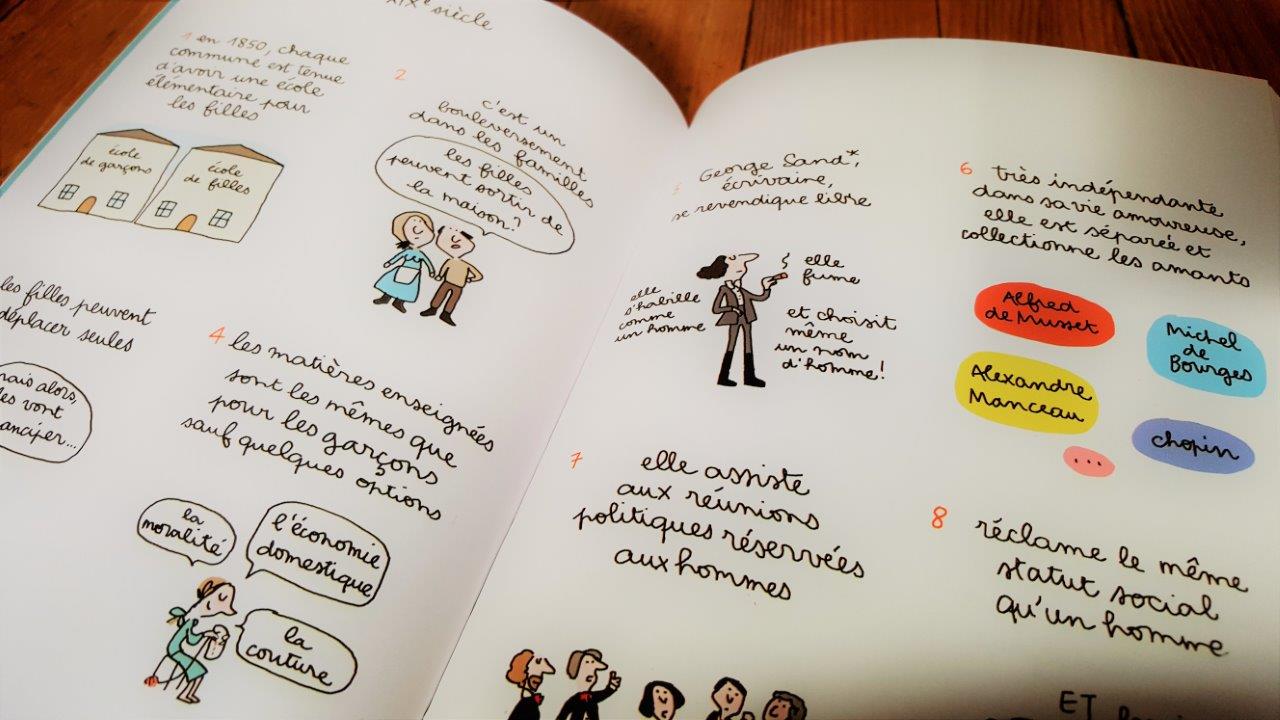 XIXe siècle
1 en 1850, chaque
commune est tenue
d'avoir une école
élémentaire pour
les filles
école
de garçons
école
de filles
2
c'est un
bouleversement
dans les familles
les filles
peuvent sortir de
la maison?
les filles peuvent
déplacer seules
mais alors,
vont
4 les matières enseignées
sont les mêmes que
pour les garçons
sauf quelques options
la
moralité
l'économie
domestique
la
couture
George Sand*,
écrivaine,
se revendique libre
elle
s'habille
comme
un homme
elle
fume
et choisit
même
un nom
d'homme!
6 très indépendante
dans sa vie amoureuse,
elle est séparée et
collectionne les amants
Alfred
de Musset
Michel
de
Bourges
Alexandre
Manceau
chopin
...
7 elle assiste
aux réunions
politiques réservées
aux hommes
8 réclame le même
statut social
qu'un homme
ET